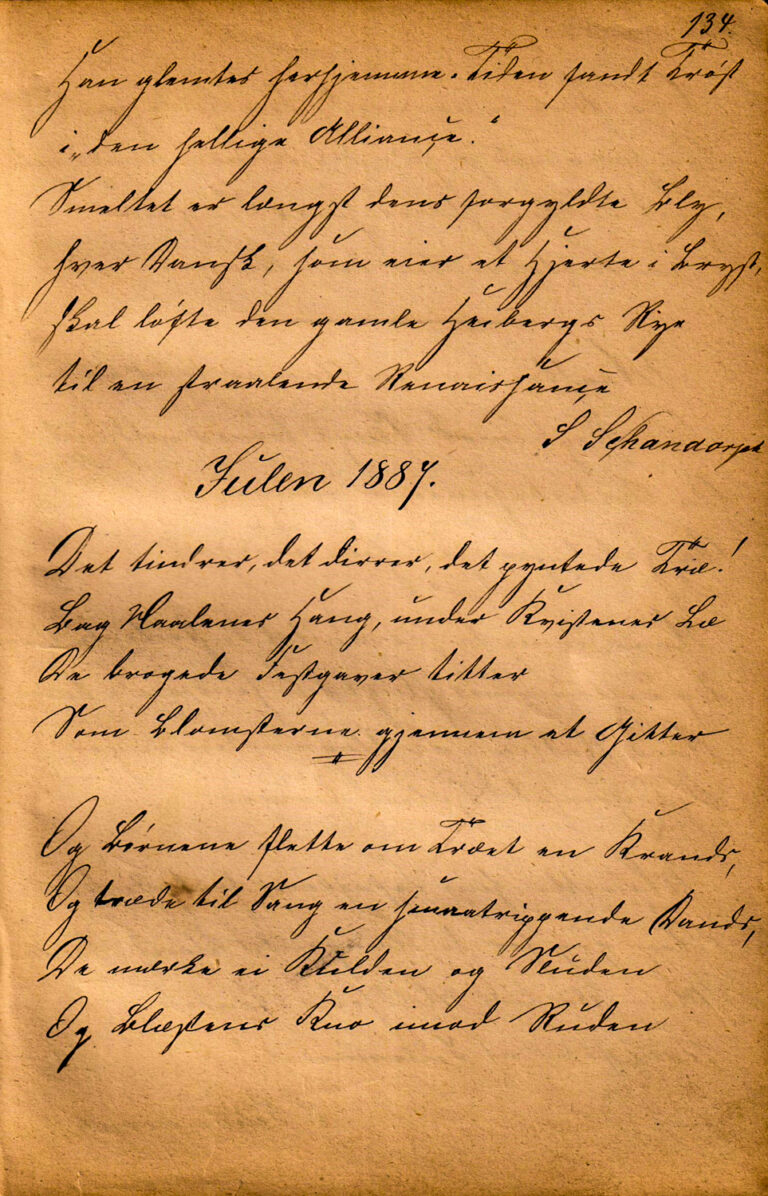 134.
Han glemtes herhjemme. Tiden fandt Trøst
i „den hellige Alliançe.“
Smeltet er længst dens forgyldte Bly,
hver Dansk, som eier et Hjerte i Bryst,
skal løfte den gamle Heibergs Ry
til en straalende Renaissançe
S Schandorph
Julen 1887.
Det tindrer, det dirrer, det pyntede Træ!
Bag Naalenes Hang, under Kvistenes Læ
De brogede Festgaver titter
Som Blomsterne gjennem et Gitter
Og Børnene flette om Træet en Krands,
Og træde til Sang en smaatrippende Dands,
De mærke ei Kulden og Sluden
Og Blæstens Kno imod Ruden